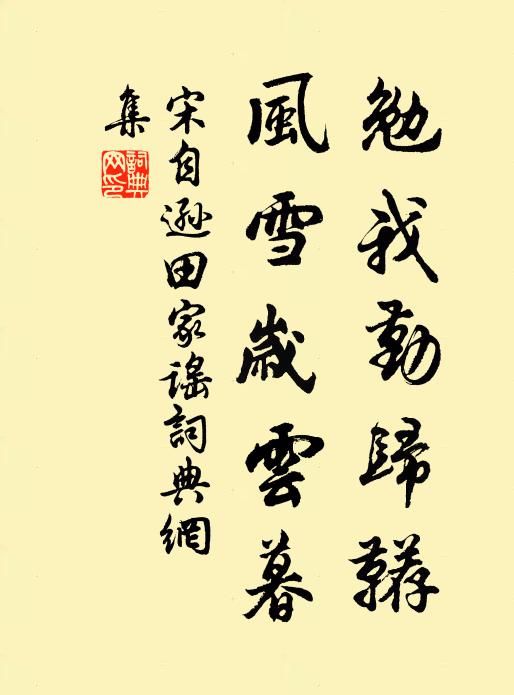 勉我勤歸鞯
風雪歲雲暮
宋自遜田家謠詞典網
集
詞典
网印